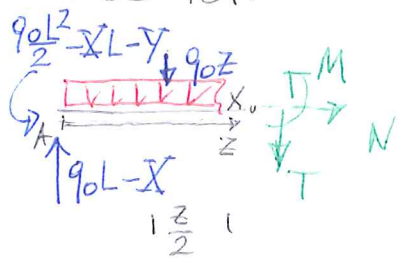 q₀L²/2 -XL-Y
q₀z
M
A
z
N
q₀L-X
T
z/2